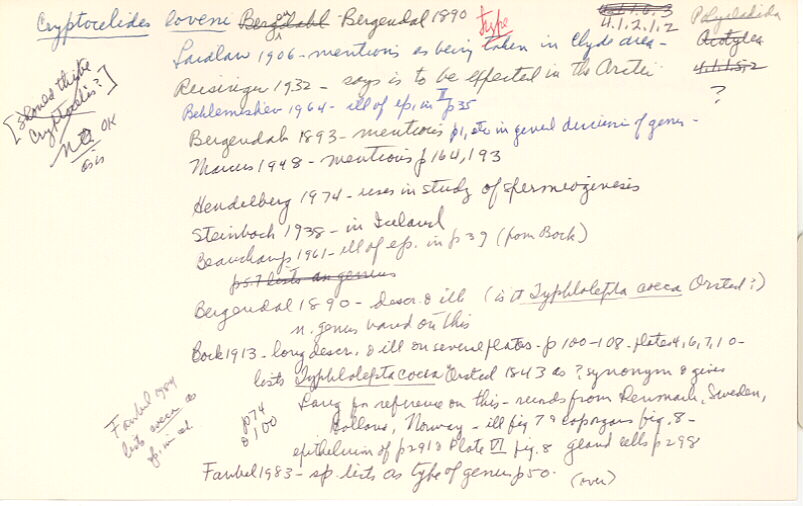 Cryptocelides loveni Bergendahl Bergendal 1890 type 4.1.2.1.2 Polycladida
Acotylea
4.1.1.5.2
?
Laidlaw 1906 - mentions as being taken in Clyde area -
Reisinger 1932 - says is to be expected in the Arctic
[should this be Cryptocelis? No OK as is]
Beklemishev 1964 - ill of ep. in II p35
Bergendal 1893 - mentions p1, etc in general discussion of genus -
Marcus 1948 - mentions p164, 193
Hendelberg 1974 - uses in study of spermiogenesis
Steinböck 1938 - in Iceland
Beauchamp 1961 - ill of ep. in p39 (from Bock)
p57 lists as genus
Bergendal 1890 - descr. & ill (is it Typhlolepta coeca Orsted?)
n. genus based on this
Bock 1913 - long descr. & ill on several plates - p100-108 - plates 4, 6, 7, 10 -
lists Typhlolepta coeca Orsted 1843 as ? synonym & gives
Lang for reference on this - records from Denmark, Sweden,
p74
& 100
Norway - ill fig 79 fig. 8 -
epithelium of p291 & Plate VI fig. 8 gland cells p298
Faubel 1984
lists coeca as
sp. in d.
Faubel 1983 - sp. lists as type of genus p50.
(over)